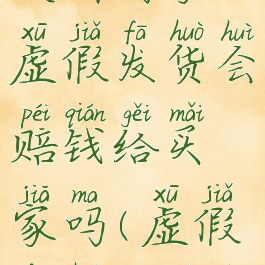 xū jiǎ fā huò huì
虚假发货会
péi qián gěi mǎi
赔钱给买
jiā ma xū jiǎ
家吗(虚假